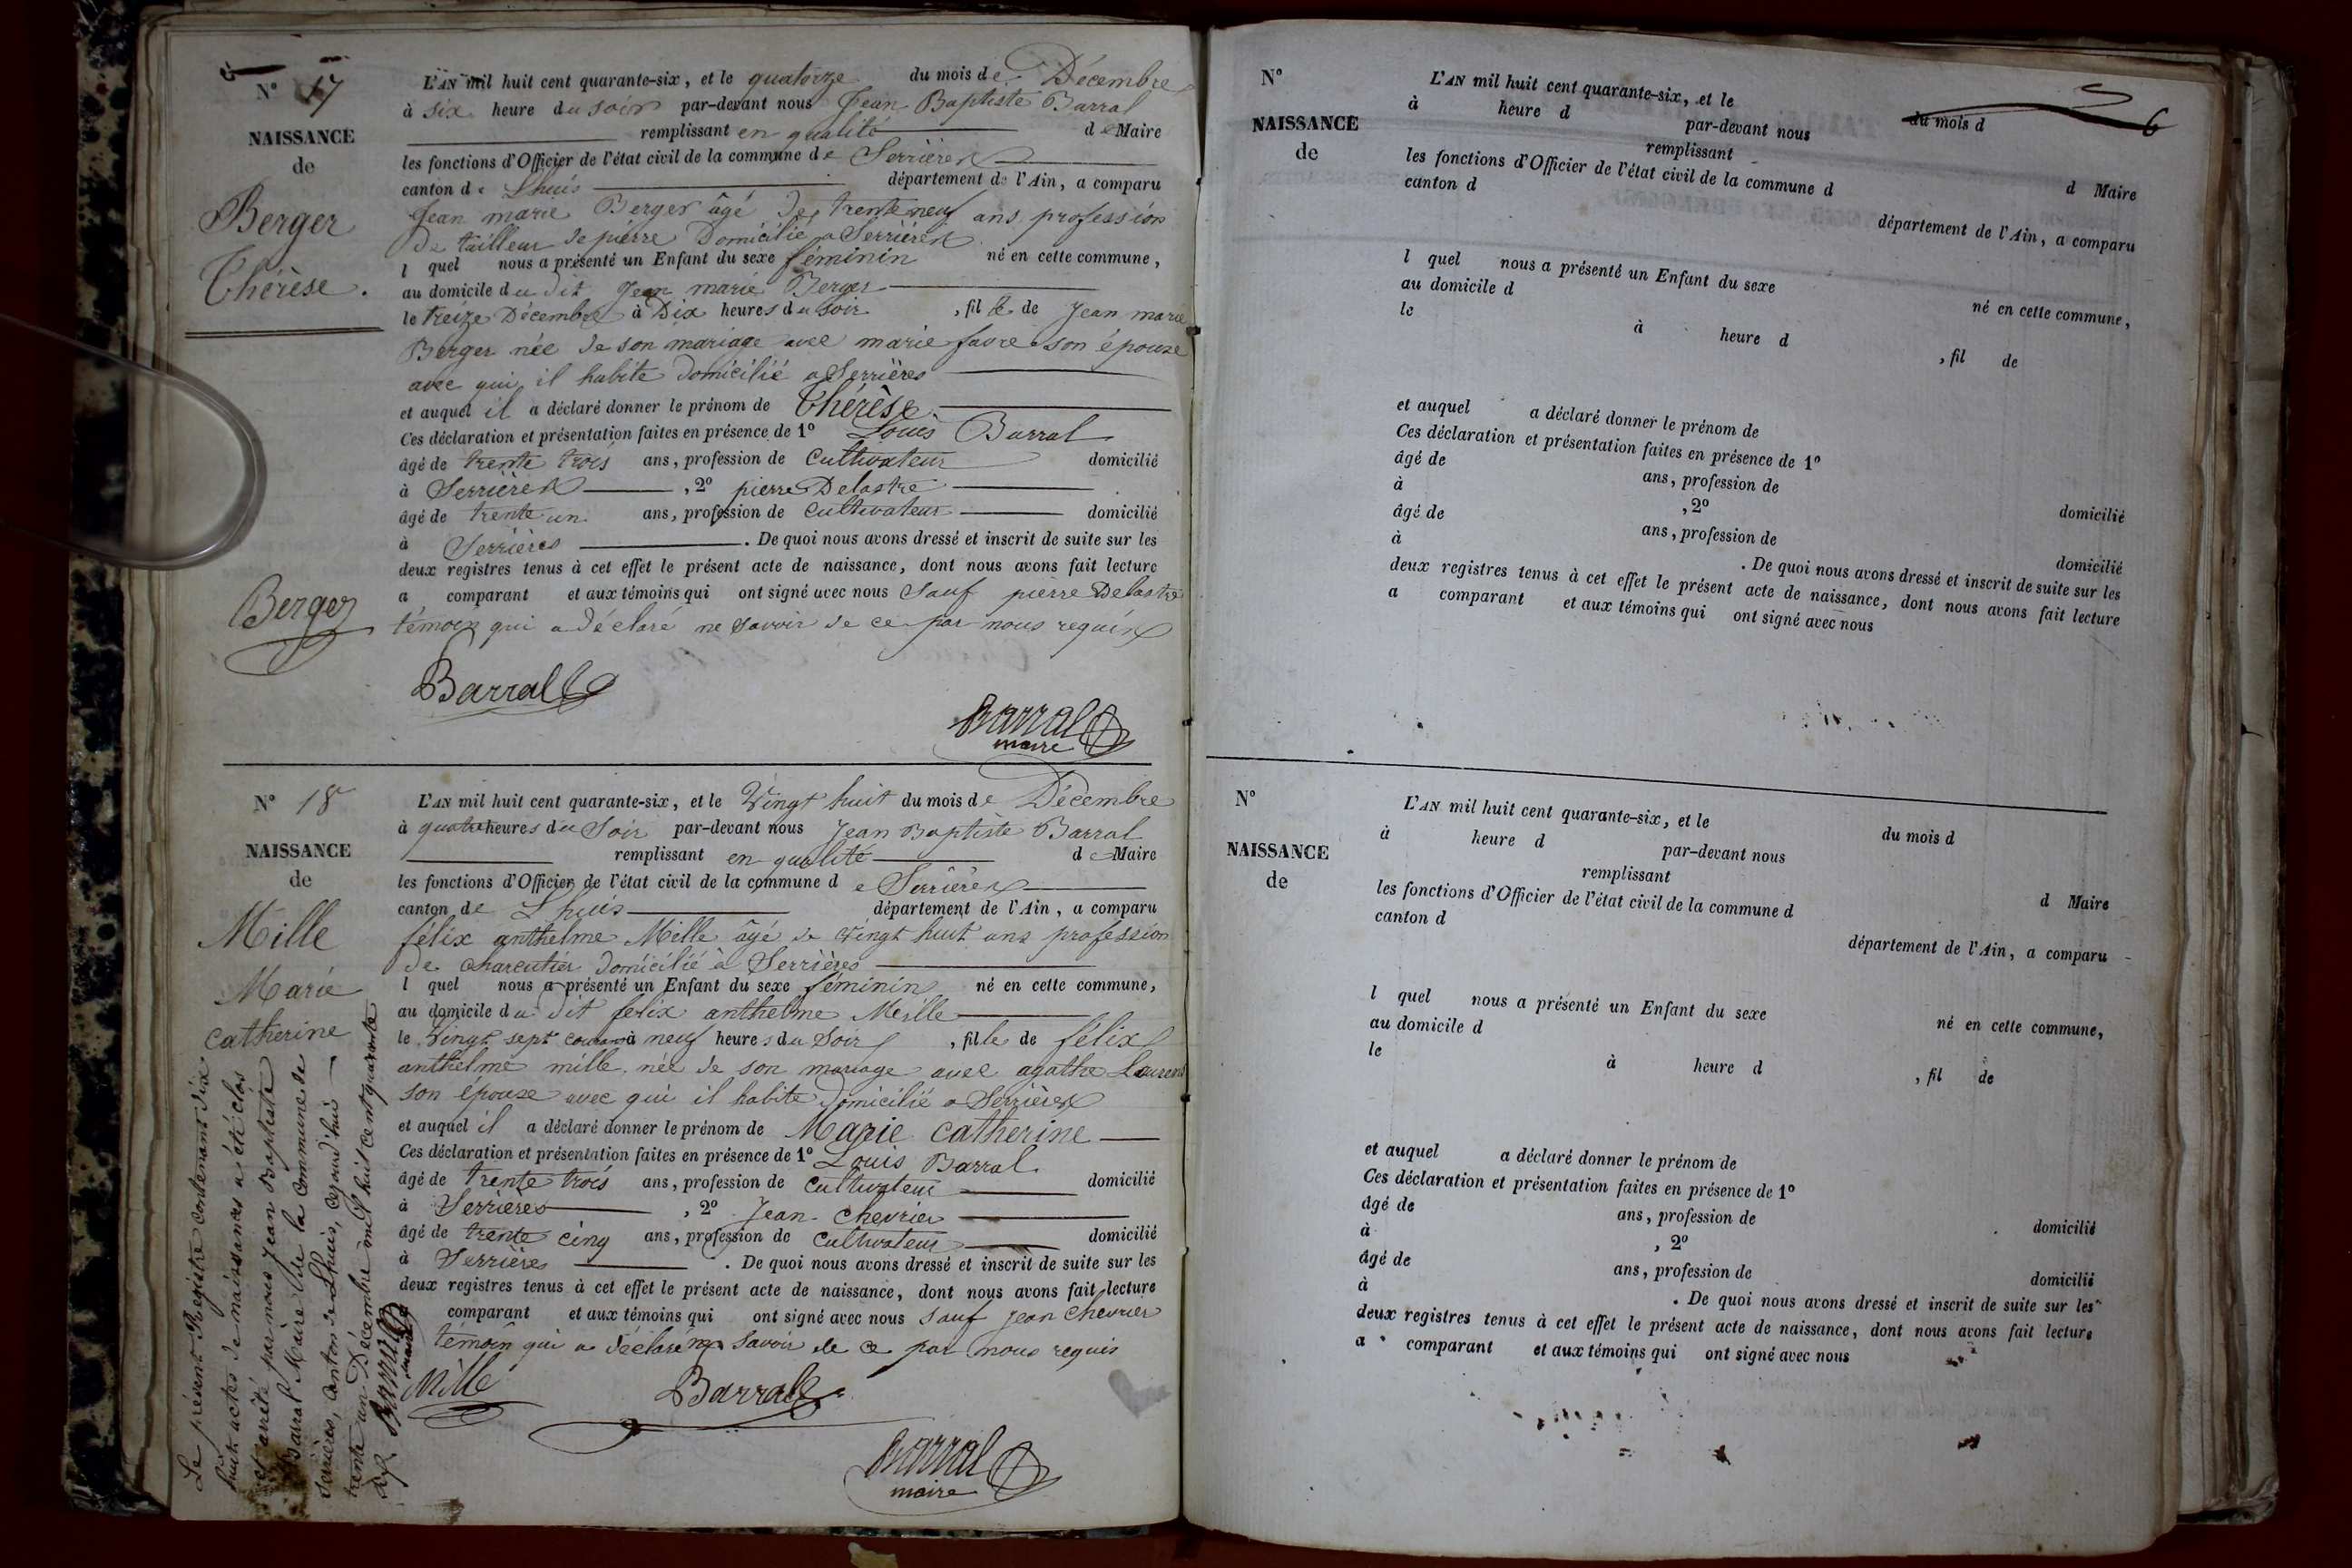 N° 17
NAISSANCE
de
Berger
Thérèse.
L'AN mil huit cent quarante-six, et le quatorze du mois de Décembre
à six heure du soir par-devant nous Jean Baptiste Barral
remplissant en qualité de Maire
les fonctions d'Officier de l'état civil de la commune de Serrières
canton de Lhuis département de l'Ain, a comparu
Jean marie Berger âgé de trente neuf ans profession
de tailleur de pierre Domicilié a Serrières
l quel nous a présenté un Enfant du sexe féminin né en cette commune,
au domicile du dit Jean marie Berger
le treize Décembre à Dix heures du soir, fille de Jean marie
Berger née de son mariage avec marie favre son épouse
avec qui il habite domicilié a Serrières
et auquel il a déclaré donner le prénom de Thérèse
Ces déclaration et présentation faites en présence de 1° Louis Barral
âgé de trente trois ans, profession de Cultivateur domicilié
à Serrières, 2° pierre Delastre
âgé de trente un ans, profession de Cultivateur domicilié
à Serrières. De quoi nous avons dressé et inscrit de suite sur les
deux registres tenus à cet effet le présent acte de naissance, dont nous avons fait lecture
a comparant et aux témoins qui ont signé avec nous Sauf pierre Delastre
témoin qui a déclaré ne savoir de ce par nous requis
Berger
Barral
Barral
maire
N° 18
NAISSANCE
de
Mille
Marie
Catherine
L'AN mil huit cent quarante-six, et le Vingt huit du mois de Décembre
à quatre heures du Soir par-devant nous Jean Baptiste Barral
remplissant en qualité de Maire
les fonctions d'Officier de l'état civil de la commune de Serrières
canton de Lhuis département de l'Ain, a comparu
félix anthelme Mille âgé de vingt huit ans profession
de charcutier domicilié à Serrières
l quel nous a présenté un Enfant du sexe féminin né en cette commune,
au domicile du dit felix anthelme Mille
le Vingt sept courant à neuf heures du Soir, fille de félix
anthelme mille née de son mariage avec agathe Laurent
son epouse avec qui il habite domicilié a Serrières
et auquel il a déclaré donner le prénom de Marie Catherine
Ces déclaration et présentation faites en présence de 1° Louis Barral
âgé de trente trois ans, profession de Cultivateur domicilié
à Serrières, 2° Jean Chevrier
âgé de trente cinq ans, profession de Cultivateur domicilié
à Serrières. De quoi nous avons dressé et inscrit de suite sur les
deux registres tenus à cet effet le présent acte de naissance, dont nous avons fait lecture
comparant et aux témoins qui ont signé avec nous Sauf Jean Chevrier
témoin qui a déclaré ne Savoir de ce par nous requis
Mille
Barral
Barral
maire
Le présent Registre contenant dix
huit actes de naissances a été clos
et arrêté par nous Jean Baptiste
Barral Maire de la Commune de
Serrières, Canton de Lhuis, cejourd'hui
trente un Décembre mil huit cent quarante
six Barral
maire
6
N°
NAISSANCE
de
L'AN mil huit cent quarante-six, et le du mois d
à heure d par-devant nous
remplissant d Maire
les fonctions d'Officier de l'état civil de la commune d
canton d département de l'Ain, a comparu
l quel nous a présenté un Enfant du sexe né en cette commune,
au domicile d
le à heure d , fil de
et auquel a déclaré donner le prénom de
Ces déclaration et présentation faites en présence de 1°
âgé de ans, profession de domicilié
à , 2°
âgé de ans, profession de domicilié
à . De quoi nous avons dressé et inscrit de suite sur les
deux registres tenus à cet effet le présent acte de naissance, dont nous avons fait lecture
a comparant et aux témoins qui ont signé avec nous
N°
NAISSANCE
de
L'AN mil huit cent quarante-six, et le du mois d
à heure d par-devant nous
remplissant d Maire
les fonctions d'Officier de l'état civil de la commune d
canton d département de l'Ain, a comparu
l quel nous a présenté un Enfant du sexe né en cette commune,
au domicile d
le à heure d , fil de
et auquel a déclaré donner le prénom de
Ces déclaration et présentation faites en présence de 1°
âgé de ans, profession de domicilié
à , 2°
âgé de ans, profession de domicilié
à . De quoi nous avons dressé et inscrit de suite sur les
deux registres tenus à cet effet le présent acte de naissance, dont nous avons fait lecture
a comparant et aux témoins qui ont signé avec nous